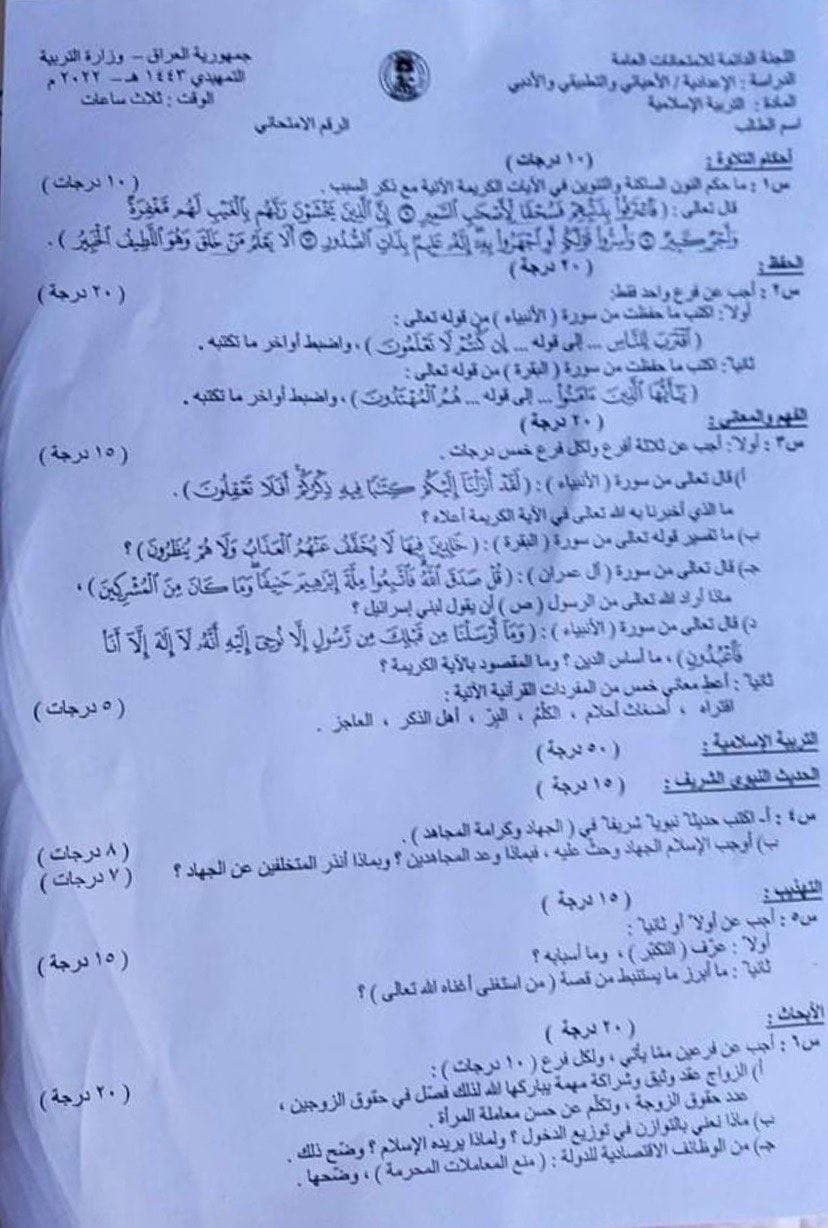 جمهورية العراق – وزارة التربية
التمهيدي ١٤٤٣ هـ – ٢٠٢٢ م
الوقت : ثلاث ساعات
الرقم الامتحاني
اللجنة الدائمة للامتحانات العامة
الدراسة : الإعدادية / الأحيائي والتطبيقي والأدبي
المادة : التربية الإسلامية
اسم الطالب
أحكام التلاوة : ( ١٠ درجات )
س١ : ما حكم النون الساكنة والتنوين في الآيات الكريمة الآتية مع ذكر السبب . ( ١٠ درجات )
قال تعالى : ( فَاعْتَرَفُوا بِذَنْبِهِمْ فَسُحْقًا لِأَصْحَابِ السَّعِيرِ ۝ إِنَّ الَّذِينَ يَخْشَوْنَ رَبَّهُم بِالْغَيْبِ لَهُم مَّغْفِرَةٌ
وَأَجْرٌ كَبِيرٌ ۝ وَأَسِرُّوا قَوْلَكُمْ أَوِ اجْهَرُوا بِهِ إِنَّهُ عَلِيمٌ بِذَاتِ الصُّدُورِ ۝ أَلَا يَعْلَمُ مَنْ خَلَقَ وَهُوَ اللَّطِيفُ الْخَبِيرُ ) .
الحفظ : ( ٢٠ درجة )
س٢ : أجب عن فرع واحد فقط: ( ٢٠ درجة )
أولاً: اكتب ما حفظت من سورة ( الأنبياء ) من قوله تعالى :
( اقْتَرَبَ لِلنَّاسِ ... إلى قوله ... إِن كُنتُمْ لَا تَعْلَمُونَ ) ، واضبط أواخر ما تكتبه .
ثانياً: اكتب ما حفظت من سورة ( البقرة ) من قوله تعالى :
( يَا أَيُّهَا الَّذِينَ ءَامَنُوا ... إلى قوله ... هُمُ الْمُهْتَدُونَ ) ، واضبط أواخر ما تكتبه .
الفهم والمعاني : ( ٢٠ درجة )
س٣ : أولاً: أجب عن ثلاثة أفرع ولكل فرع خمس درجات . ( ١٥ درجة )
أ) قال تعالى من سورة ( الأنبياء ) : ( لَقَدْ أَنزَلْنَا إِلَيْكُمْ كِتَابًا فِيهِ ذِكْرُكُمْ أَفَلَا تَعْقِلُونَ ) .
ما الذي أخبرنا به الله تعالى في الآية الكريمة أعلاه ؟
ب) ما تفسير قوله تعالى من سورة ( البقرة ) : ( خَالِدِينَ فِيهَا لَا يُخَفَّفُ عَنْهُمُ الْعَذَابُ وَلَا هُمْ يُنظَرُونَ ) ؟
جـ) قال تعالى من سورة ( آل عمران ) : ( قُلْ صَدَقَ اللَّهُ فَاتَّبِعُوا مِلَّةَ إِبْرَاهِيمَ حَنِيفًا وَمَا كَانَ مِنَ الْمُشْرِكِينَ ) ،
ماذا أراد الله تعالى من الرسول ( ص ) أن يقول لبني إسرائيل ؟
د) قال تعالى من سورة ( الأنبياء ) : ( وَمَا أَرْسَلْنَا مِن قَبْلِكَ مِن رَّسُولٍ إِلَّا نُوحِي إِلَيْهِ أَنَّهُ لَا إِلَهَ إِلَّا أَنَا
فَاعْبُدُونِ ) ، ما أساس الدين ؟ وما المقصود بالآية الكريمة ؟
ثانياً : أعط معاني خمس من المفردات القرآنية الآتية : ( ٥ درجات )
افتراه ، أضغاث أحلام ، الكَلِمُ ، البِرّ ، أهل الذكر ، العاجز .
التربية الإسلامية : ( ٥٠ درجة )
الحديث النبوي الشريف : ( ١٥ درجة )
س٤ : أ- اكتب حديثاً نبوياً شريفاً في ( الجهاد وكرامة المجاهد ) . ( ٨ درجات )
ب) أوجب الإسلام الجهاد وحثّ عليه ، فبماذا وعد المجاهدين ؟ وبماذا أنذر المتخلفين عن الجهاد ؟ ( ٧ درجات )
التهذيب : ( ١٥ درجة )
س٥ : أجب عن أولاً أو ثانياً :
أولاً : عرّف ( التكبّر ) ، وما أسبابه ؟ ( ١٥ درجة )
ثانياً : ما أبرز ما يستنبط من قصة ( من استغنى أغناه الله تعالى ) ؟
الأبحاث : ( ٢٠ درجة )
س٦ : أجب عن فرعين ممّا يأتي ، ولكل فرع ( ١٠ درجات ) :
أ) الزواج عقد وثيق وشراكة مهمة يباركها الله لذلك فصّل في حقوق الزوجين ، ( ٢٠ درجة )
عدد حقوق الزوجة ، وتكلّم عن حسن معاملة المرأة .
ب) ماذا نعني بالتوازن في توزيع الدخول ؟ ولماذا يريده الإسلام ؟ وضّح ذلك .
جـ) من الوظائف الاقتصادية للدولة : ( منع المعاملات المحرمة ) ، وضّحها .